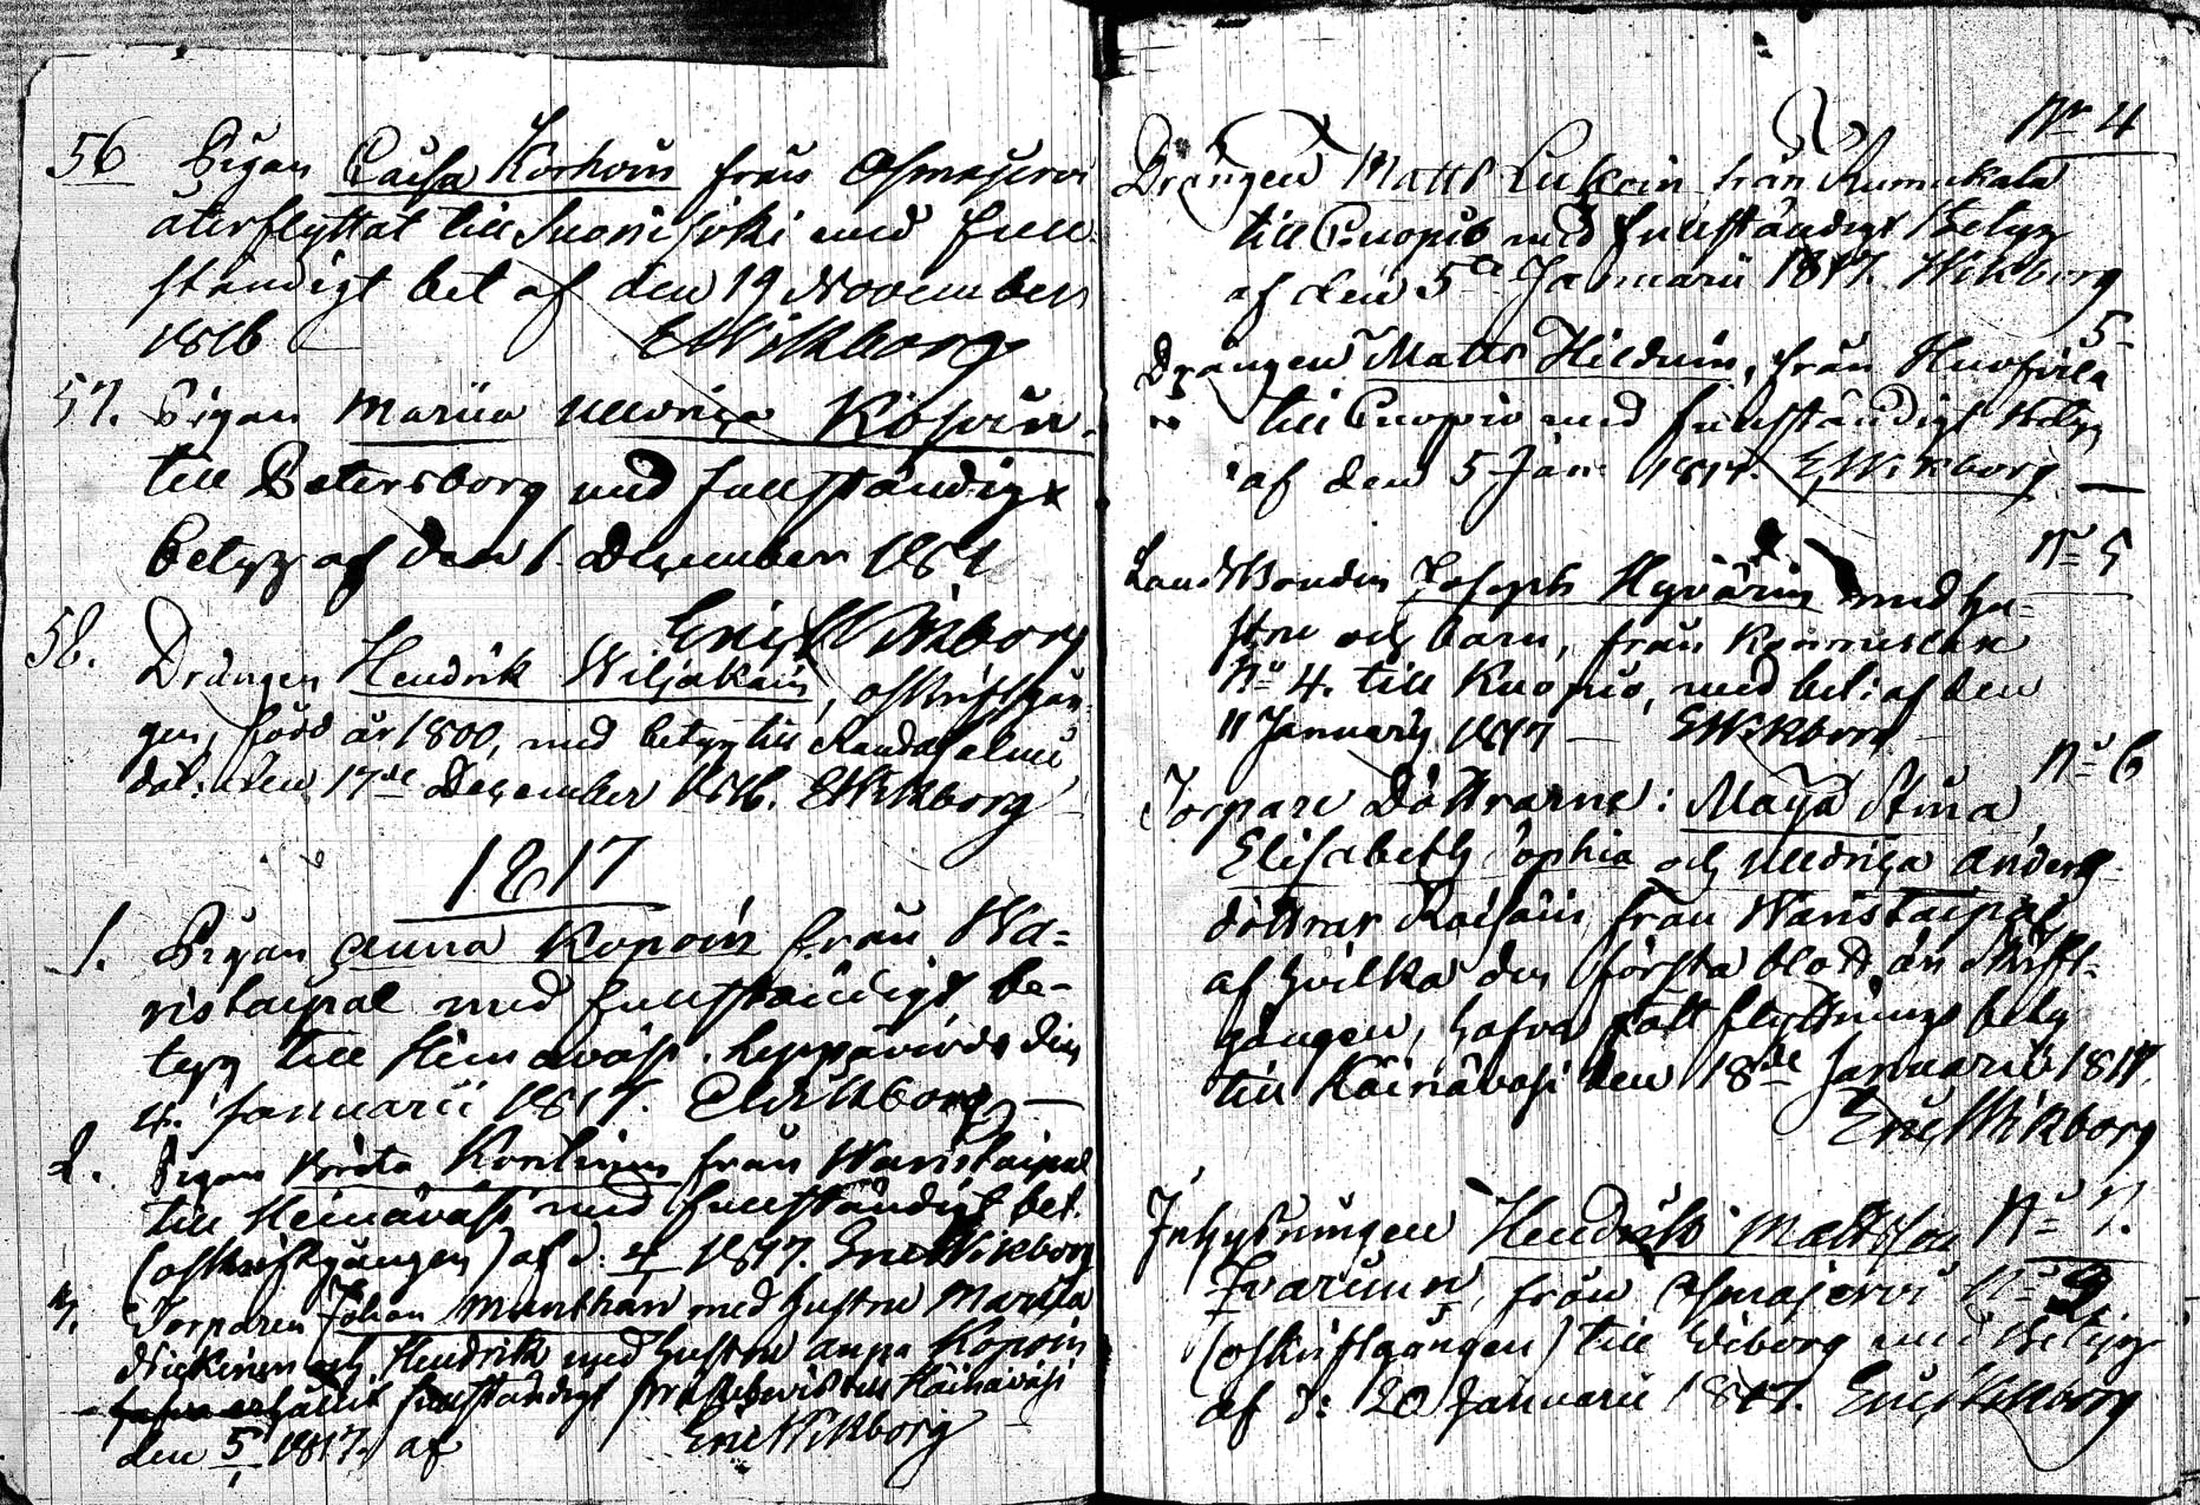 56 Pigan Caisa Korhoin från Osmajervi
återflyttat till Suonisjoki med full-
ständigt bet af den 19 November
1816 EWikborg
57. Pigan Maria Ulldrica
till Petersborg med fullständigt
betyg af den 1. December
Eric Wikborg
58. Drängen Hendrik Wiljakain, oskriftgån-
gen, född år 1800, med betyg till Randasalmi
dat: den 17de December 1816. EWikborg
1817
1. Pigan Anna Kopoin från Wa-
ristaipal med fullständigt be-
tyg till Heinäväsi. Leppävirda den
4. Januarii 1817. EWikborg
2. Pigan Brita från Waristaipal
till Heinäväsi med fullständigt bet.
(oskriftgången) af d: 1817. Eric Wikborg
3. Torparen Johan Munthan med hustru Maria
och Hendrik med hustru Anna Kopoin
fullständigt till Heinäväsi
den 5/1 1817. af Eric Wikborg
Nr 4
Drängen Matts från
till Cuopio med fullständigt Betyg
af den 5te Januarii 1817. Wikborg
5
Drängen Matts från
till Cuopio med fullständigt betyg
af den 5 Jan: 1817. EWikborg
No 5
Landbonden Joseph Hyvärin med hu-
stru och barn, från
No 4. till Kuopio, med bet: af den
11 Januarij 1817 EWikborg
No 6
Torpare Döttrarne: Maja Stina,
Elisabeth Sophia och Ulldrica Anders
döttrar från Waristaipal,
af hvilka den första blott är skrift-
gången, hafva fått flyttnings bety
till Häinäväsi den 18de Januarii 1817.
Eric Wikborg
No 7.
Inhysningen Hendrik Mattsson
från Osmajervi No 9
(oskriftgången) till Wiborg med Betyg
af d: 20 Januarii 1817. Eric Wikborg